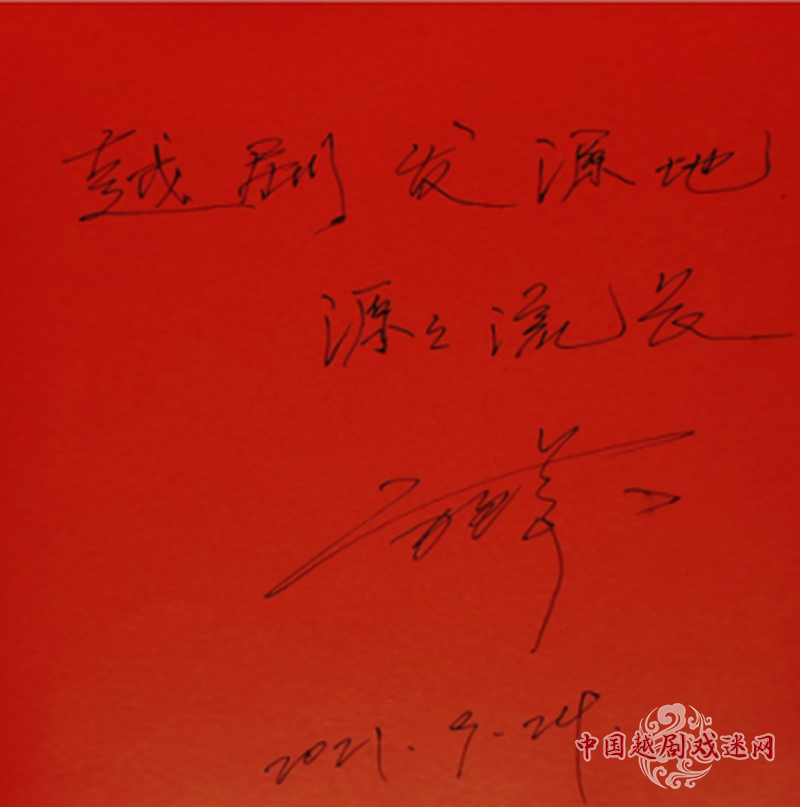 越剧发源地
源之流长
2021.9.24.
中国越剧戏迷网